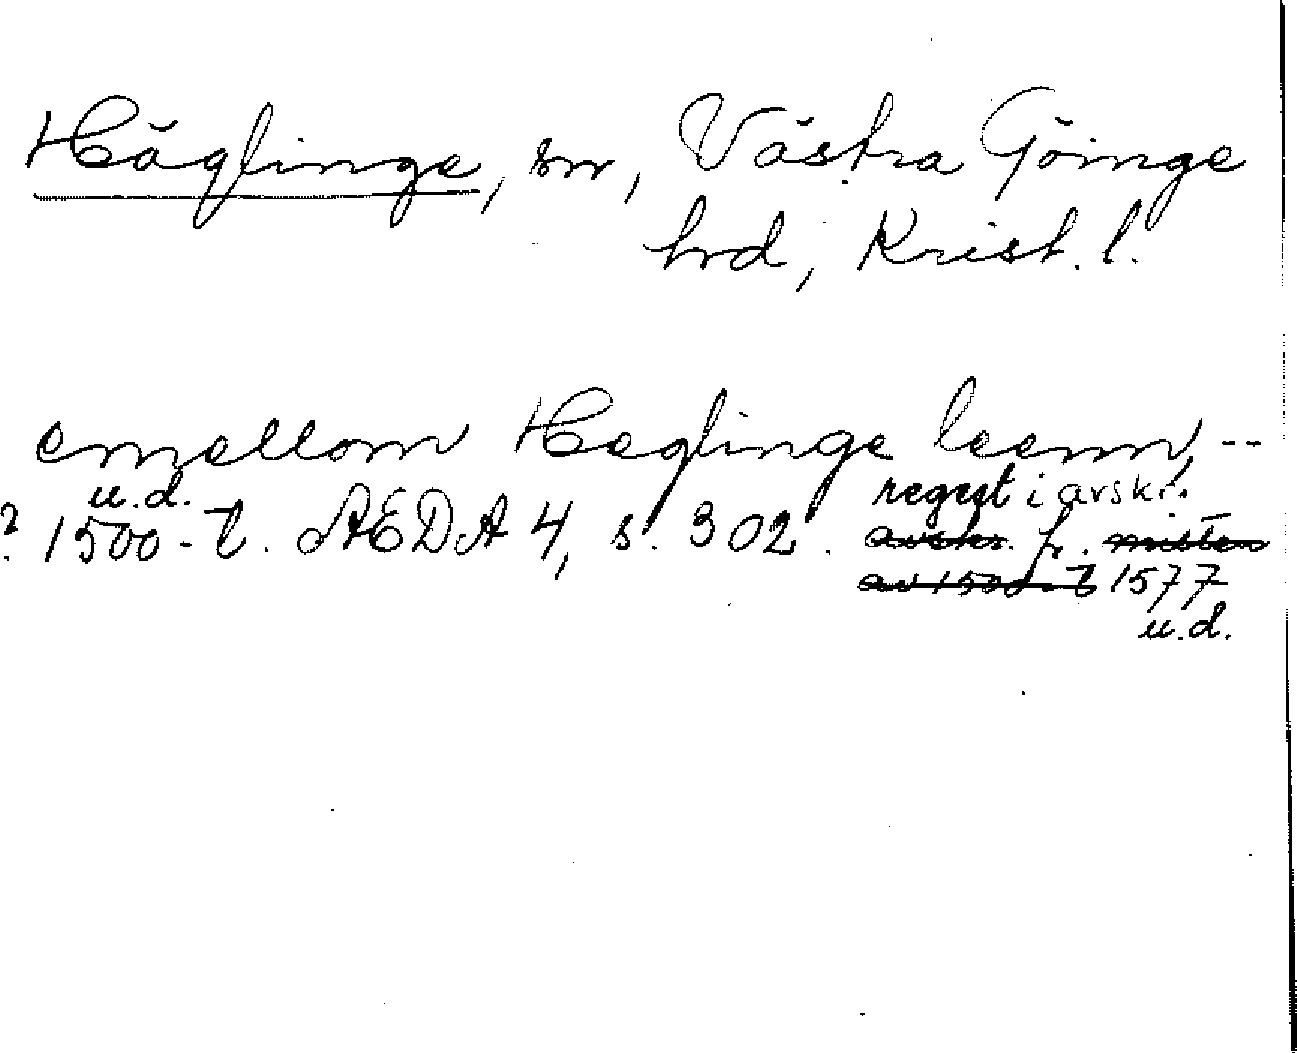 Häglinge, sn, Västra Göinge
hrd, Krist. l.
emellom Heglinge leenn, --
u.d. regest i avskr.
? 1500-t. AEDA 4, s. 302. avskr. fr. mitten
av 1500-t 1577
u.d.